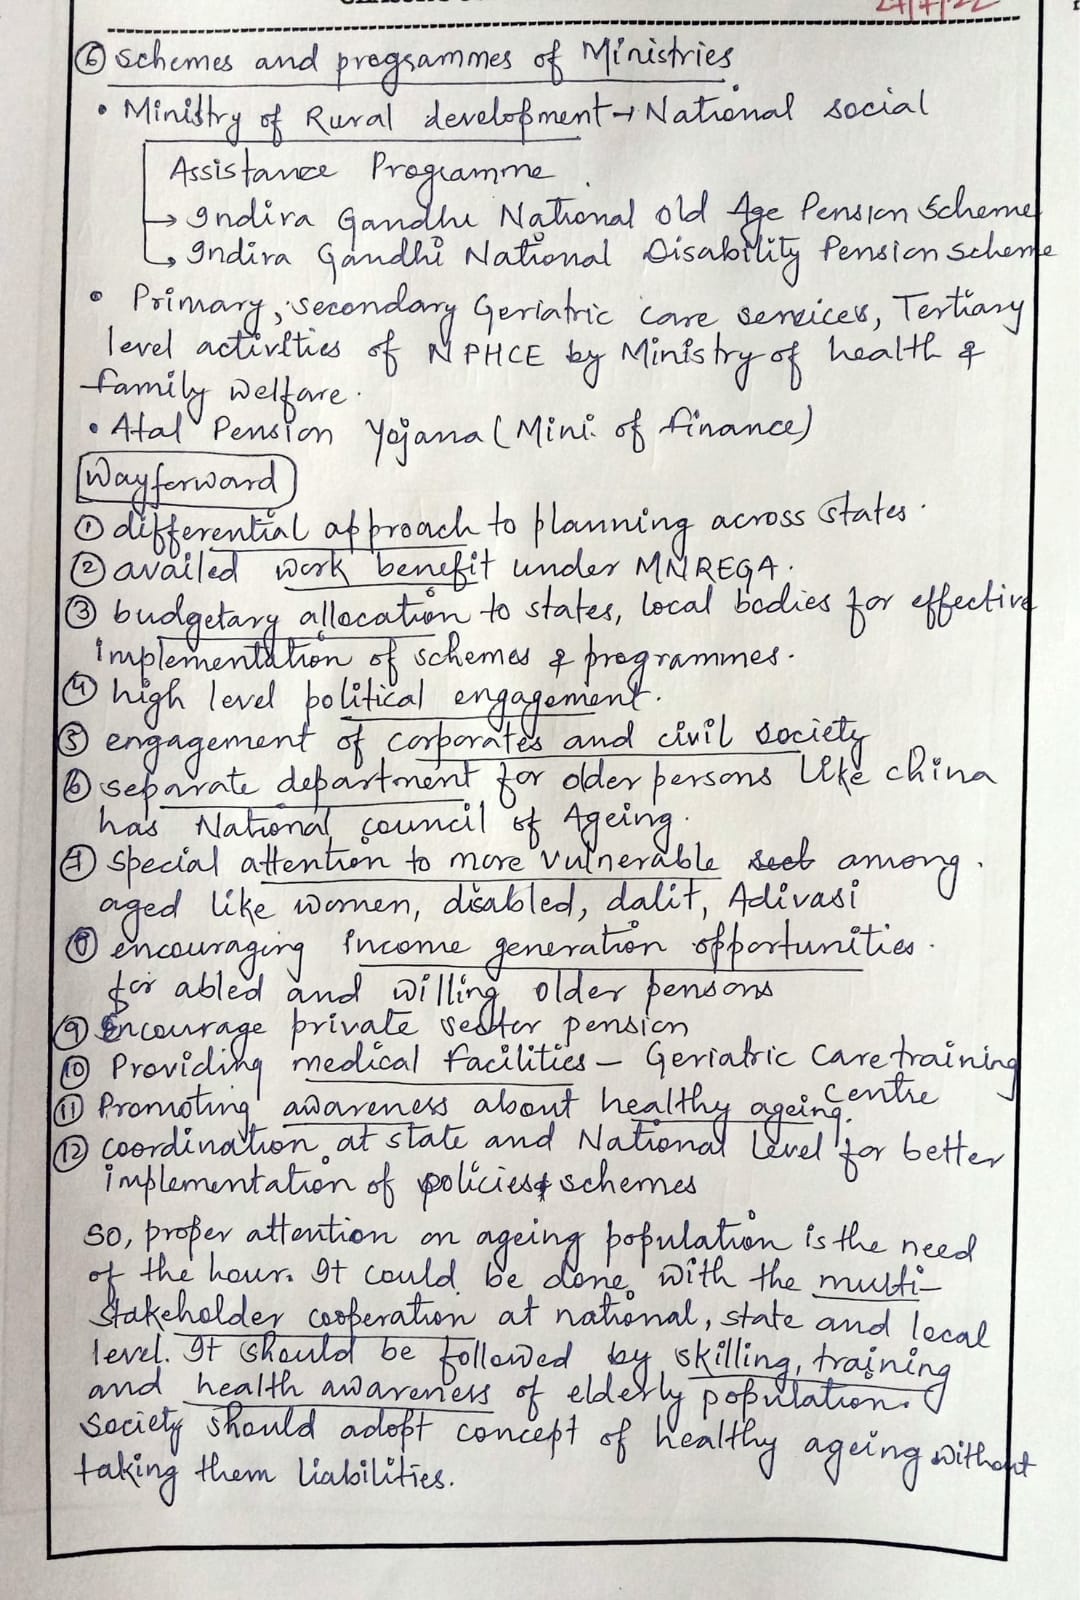 27/7/22
⑥ schemes and programmes of Ministries
• Ministry of Rural development → National social
Assistance Programme
→ Indira Gandhi National Old Age Pension Scheme
→ Indira Gandhi National Disability Pension Scheme
• Primary, secondary Geriatric care services, Tertiary
level activities of NPHCE by Ministry of health &
family welfare.
• Atal Pension Yojana (Mini. of finance)
Wayforward
① differential approach to planning across states.
② availed work benefit under MNREGA.
③ budgetary allocation to states, local bodies for effective
implementation of schemes & programmes.
④ high level political engagement.
⑤ engagement of corporates and civil society
⑥ separate department for older persons like china
has National council of Ageing.
⑦ special attention to more vulnerable sect among
aged like women, disabled, dalit, Adivasi
⑧ encouraging income generation opportunities.
for abled and willing older persons
⑨ Encourage private sector pension
⑩ Providing medical facilities – Geriatric Care training
centre
⑪ Promoting awareness about healthy ageing.
⑫ coordination at state and National level for better
implementation of policies & schemes
So, proper attention on ageing population is the need
of the hour. It could be done with the multi-
stakeholder cooperation at national, state and local
level. It should be followed by skilling, training
and health awareness of elderly population.
Society should adopt concept of healthy ageing without
taking them liabilities.